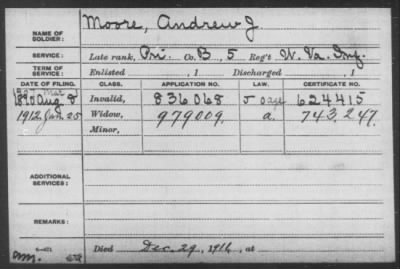 Moore, Andrew J
NAME OF SOLDIER:
SERVICE: Late rank, Pri. Co. B, 5 Reg't W. Va. Inf.
TERM OF SERVICE: Enlisted , 1 Discharged , 1
DATE OF FILING. CLASS. APPLICATION NO. LAW. CERTIFICATE NO.
Aug 8 Invalid, 836068 624415
Widow, 979009. a. 743,247.
Minor,
ADDITIONAL SERVICES:
REMARKS:
Died Dec. 29, 1916, at